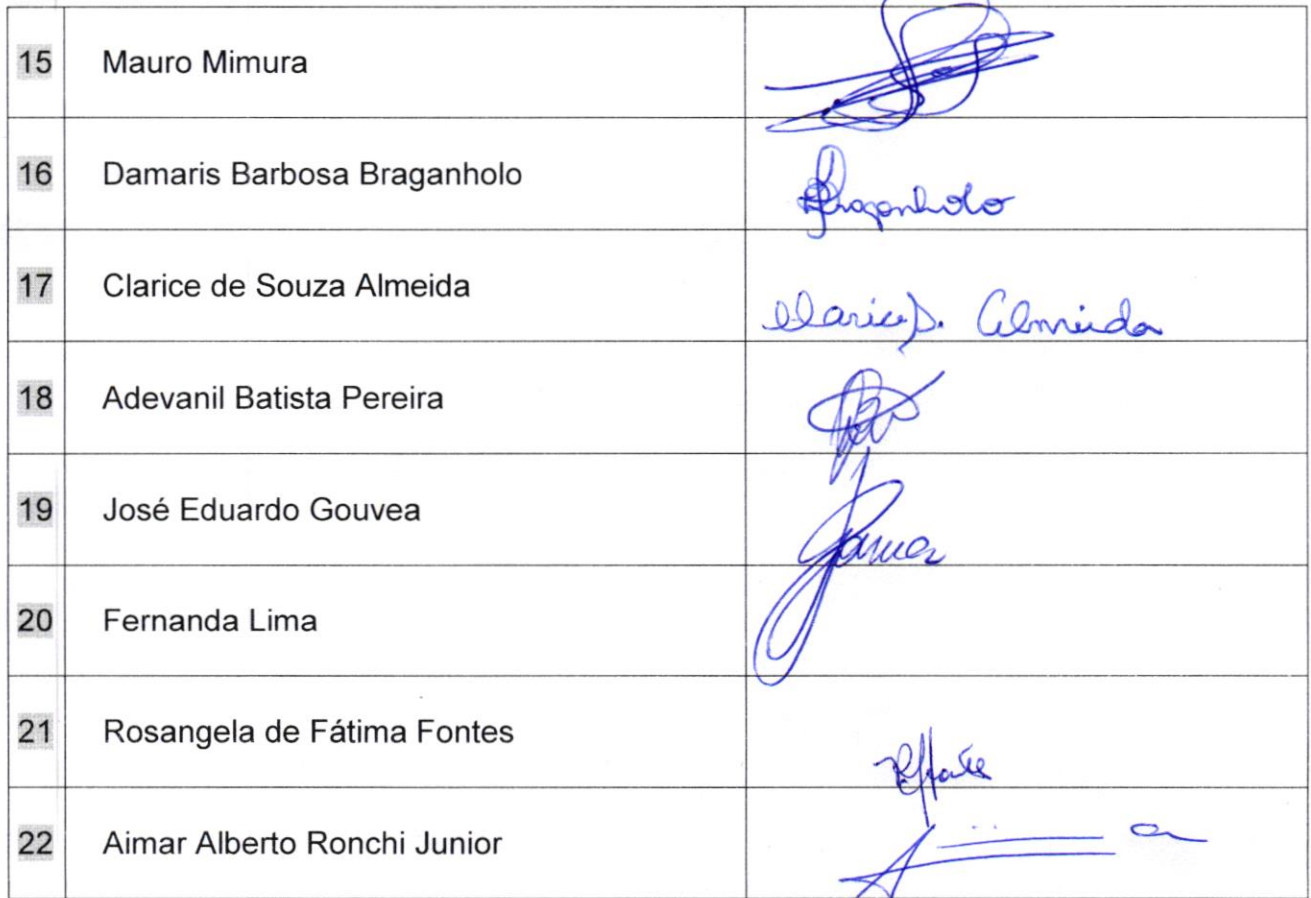 15 Mauro Mimura
16 Damaris Barbosa Braganholo Braganholo
17 Clarice de Souza Almeida Clarice S. Almeida
18 Adevanil Batista Pereira
19 José Eduardo Gouvea
20 Fernanda Lima
21 Rosangela de Fátima Fontes
22 Aimar Alberto Ronchi Junior